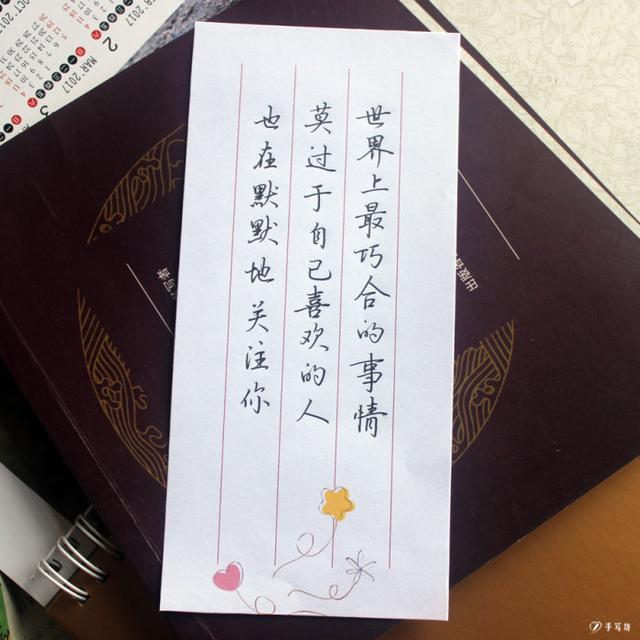 世界上最巧合的事情
莫过于自己喜欢的人
也在默默地关注你
MAR 2017
2
OCT 2017
手写坊